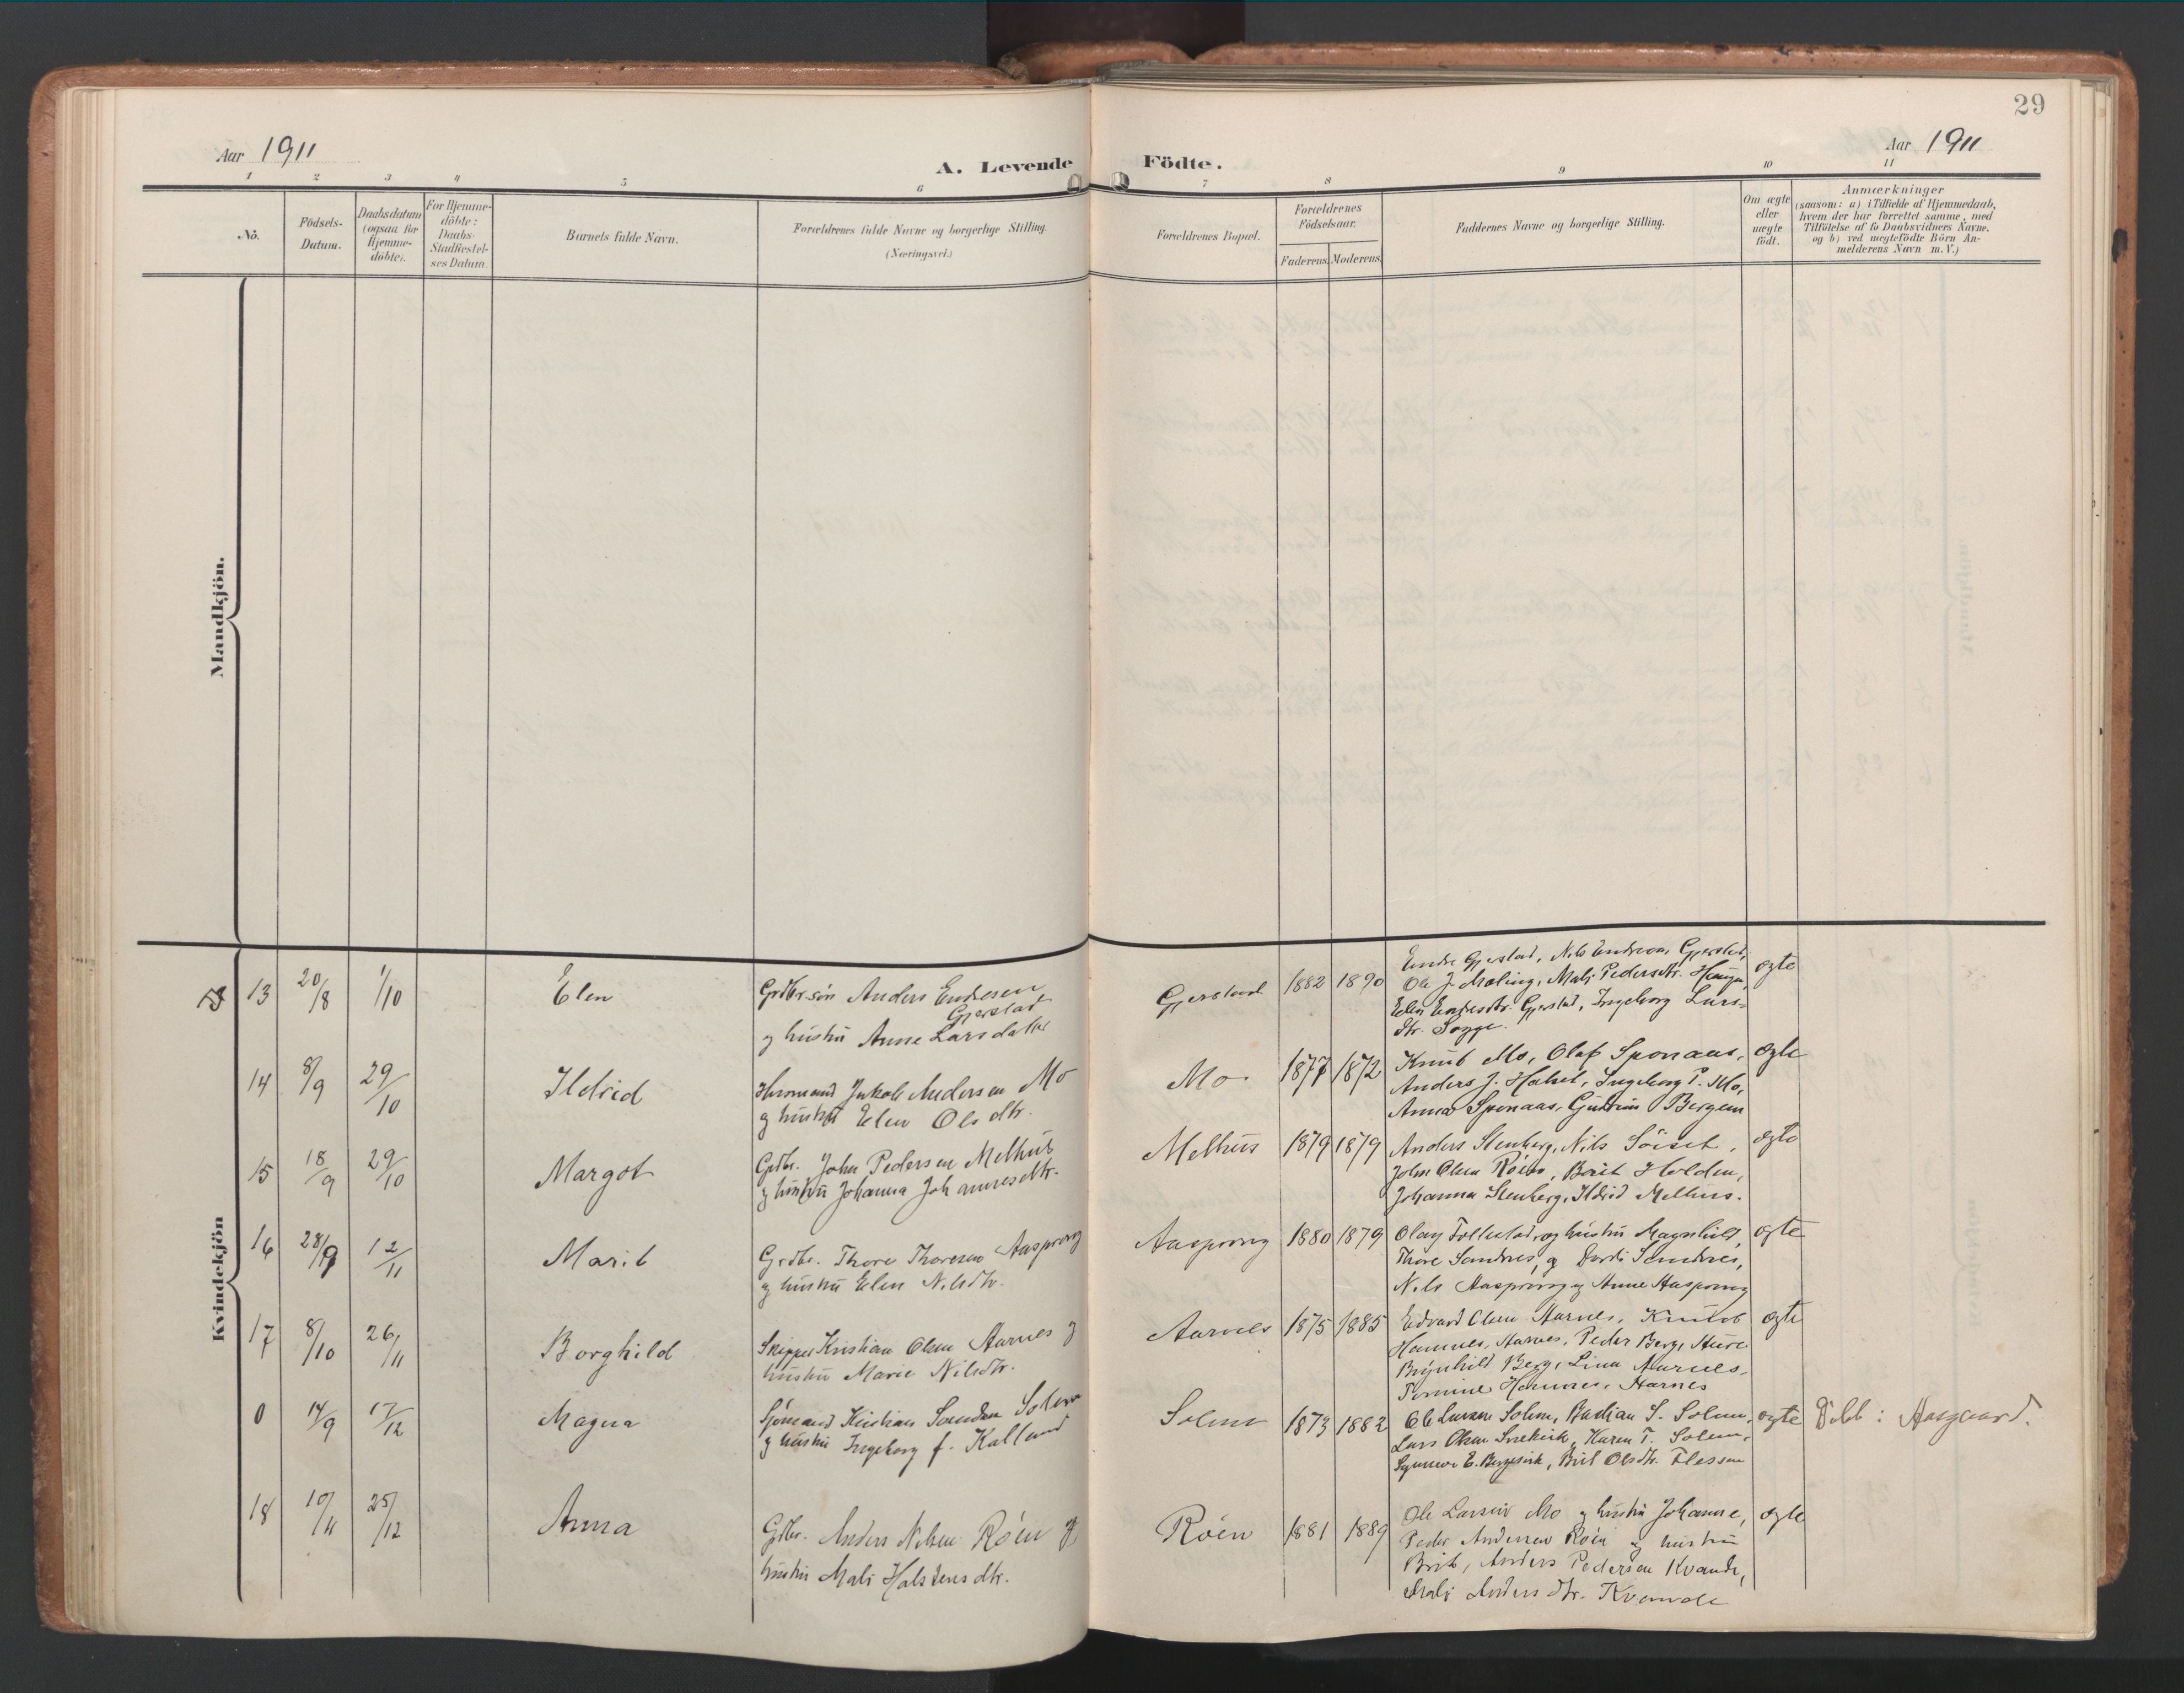 29
Aar 1911
A. Levende Födte.
Aar 1911
1 2 3 4 5 6 7 8 9 10 11
No.
Födsels-
Datum.
Daabsdatum
(ogsaa for
Hjemme-
döbte).
For Hjemme-
döbte:
Daabs-
Stadfæstel-
ses Datum.
Barnets fulde Navn.
Forældrenes fulde Navne og borgerlige Stilling.
(Næringsvei.)
Forældrenes Bopæl.
Forældrenes
Födselsaar.
Faderens. Moderens.
Faddernes Navne og borgerlige Stilling.
Om ægte
eller
uægte
födt.
Anmærkninger
(saasom: a) i Tilfælde af Hjemmedaab,
hvem der har forrettet samme, med
Tilföielse af to Daabsvidners Navne,
og b) ved uægtefödte Börn An-
melderens Navn m. V.)
Mandkjön.
Kvindekjön
13 20/8 1/10 Elen
Grdbr.sön Anders Endresen
Gjerstad
og hustru Anne Larsdatter
Gjerstad 1882 1890
Endre Gjerstad, Nils Endresen Gjerstad,
Ole J. Moling, Mali Pedersdtr. Hauga,
Elen Endresdtr. Gjerstad, Ingeborg Lars-
dtr. Sogge.
ægte
14 8/9 29/10 Ildrid
Husmand Jakob Andersen Mo
og hustru Elen Olsdtr.
Mo 1877 1872
Knut Mo, Olaf Sponaas,
Anders J. Halset, Ingeborg P. Mo,
Anna Sponaas, Gudrun Bergem
ægte
15 18/9 29/10 Margot
Grdbr. John Pedersen Melhus
og hustru Johanna Johannesdtr.
Melhus 1879 1879
Anders Stenberg, Nils Söiset,
John Olsen Röen, Borit Holden,
Johanna Stenberg, Ildrid Melhus.
ægte
16 28/9 12/11 Marit
Grdbr. Thore Thoresen Aasprong
og hustru Elen Nilsdtr.
Aasprong 1880 1879
Olay Follestad og hustru Magnhild,
Thore Sandnes, og Dordi Sandnes,
Nils Aasprong og Anne Aasprong
ægte
17 8/10 26/11 Borghild
Skipper Kristian Olsen Aarnes og
hustru Marie Nilsdtr.
Aarnes 1875 1885
Edvard Olsen Aarnes, Knut
Hamnes, Aarnes, Peder Berg,
Brynhild Berg, Lina Aarnes,
Hamnes, Aarnes
ægte
0 14/9 17/12 Magna
Sjömand Kristian Solem
og hustru Ingeborg f. Kalland
Solem 1873 1882
Ole Larsen Solem, Bastian S. Solem,
Lars Olsen, Karen T. Solem,
Synnöve E., Brit Olsdtr. Flessen
ægte
Döbt: Aasgaard.
18 10/11 25/12 Anna
Grdbr. Anders Nilsen Röen og
hustru Mali Halstensdtr.
Röen 1881 1889
Ole Larsen Mo og hustru Johanne,
Peder Andersen Röen og hustru
Brit, Anders Pedersen Kvande,
Mali Andersdtr. Kvande
ægte